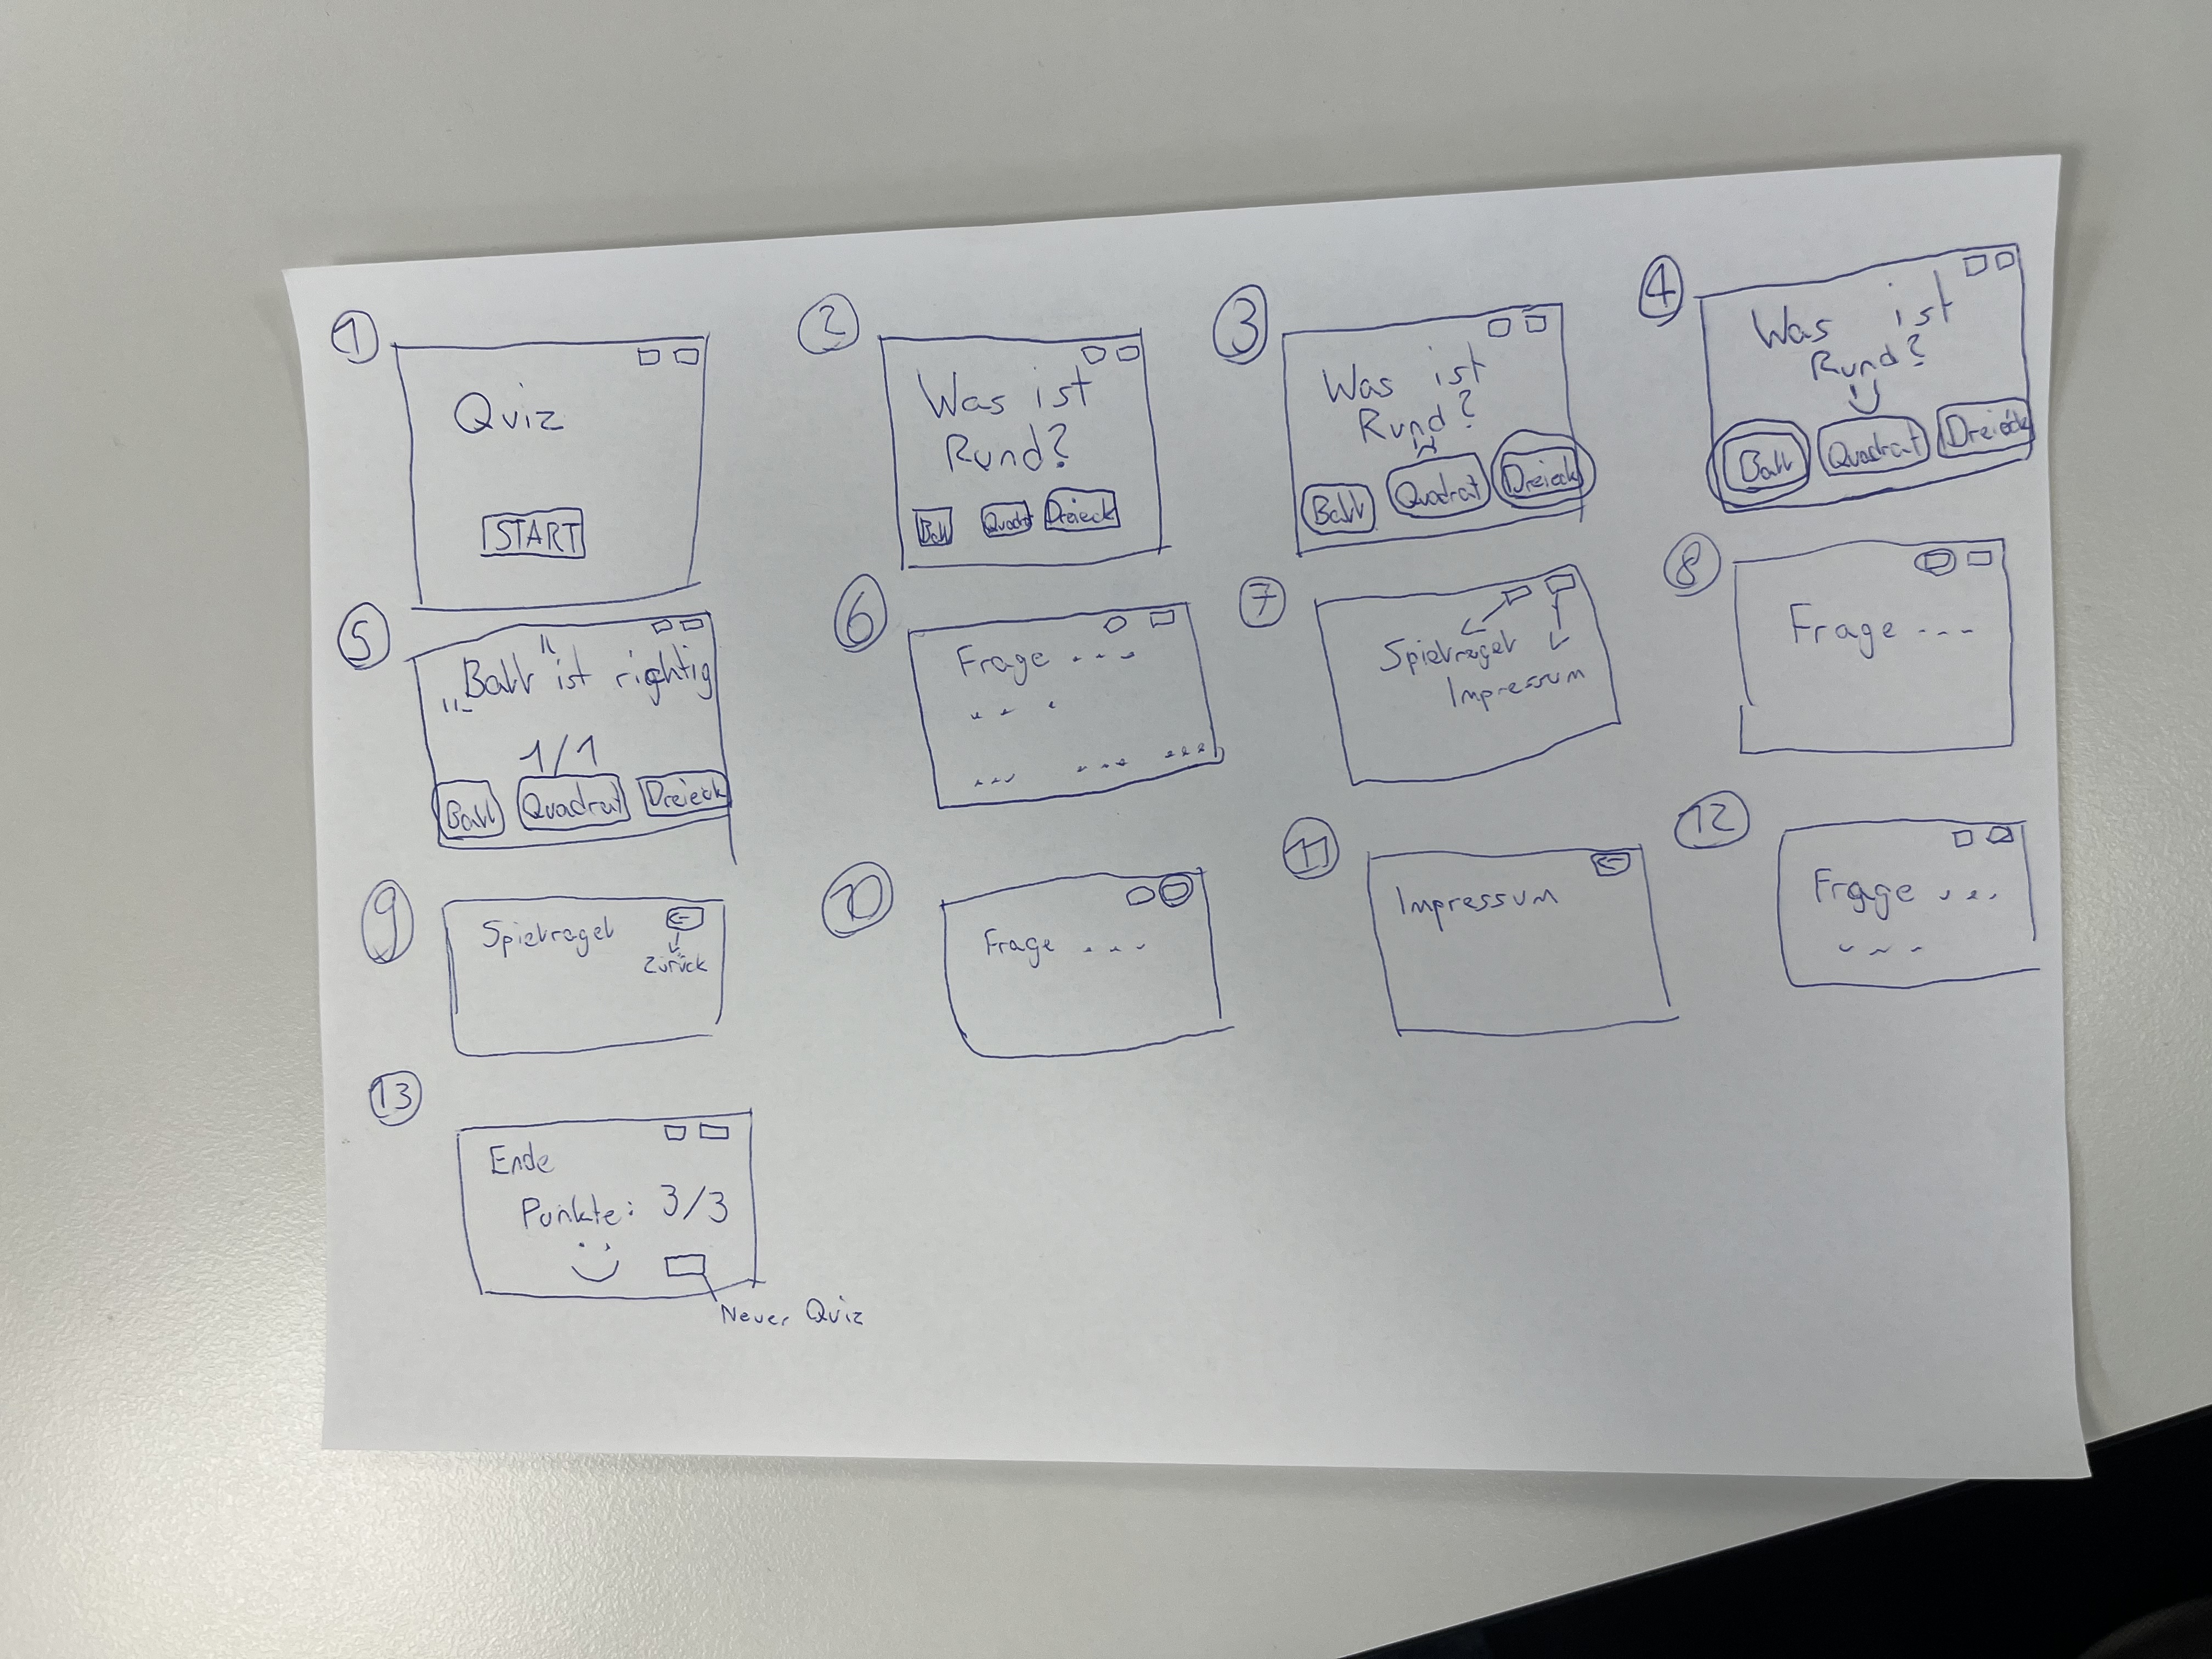 1
Quiz
START
2
Was ist
Rund?
Ball Quadrat Dreieck
3
Was ist
Rund?
Ball Quadrat Dreieck
4
Was ist
Rund?
Ball Quadrat Dreieck
5
"Ball" ist rightig
1/1
Ball Quadrat Dreieck
6
Frage ...
... ... ...
7
Spielregel
Impressum
8
Frage ...
9
Spielregel
zurück
10
Frage ...
11
Impressum
12
Frage ...
...
13
Ende
Punkte: 3/3
:)
Neuer Quiz